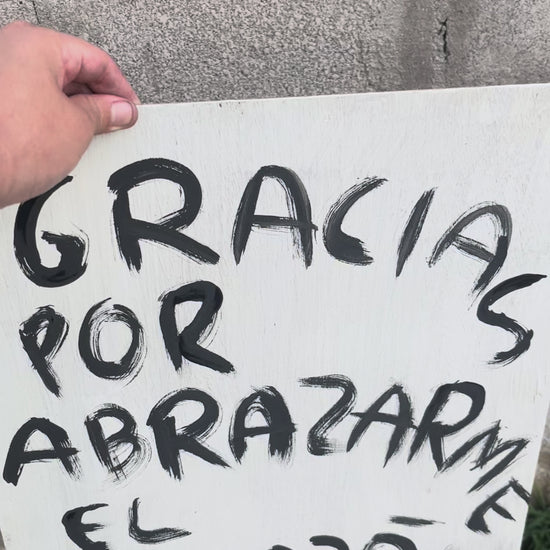 GRACIAS
POR
ABRAZARME
EL